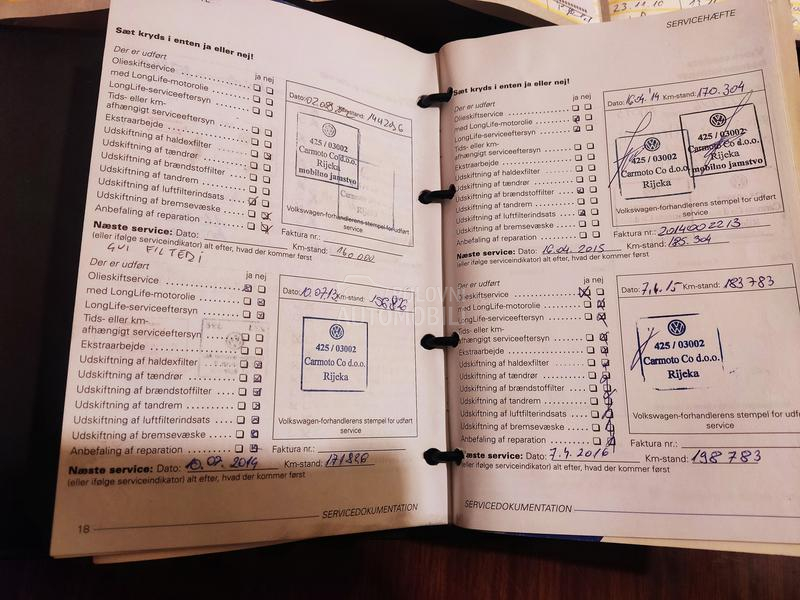 Sæt kryds i enten ja eller nej!
Der er udført
ja nej
Olieskiftservice
med LongLife-motorolie
LongLife-serviceeftersyn
Tids- eller km-
afhængigt serviceeftersyn
Ekstraarbejde
Udskiftning af haldexfilter
Udskiftning af tændrør
Udskiftning af brændstoffilter
Udskiftning af tandrem
Udskiftning af luftfilterindsats
Udskiftning af bremsevæske
Anbefaling af reparation
Næste service: Dato:
(eller ifølge serviceindikator) alt efter, hvad der kommer først
Km-stand: 160 000
GUI FILTERI
Dato:
425 / 03002
Carmoto Co d.o.o.
Rijeka
mobilno jamstvo
Volkswagen-forhandlerens stempel for udført
service
Faktura nr.:
Der er udført
ja nej
Olieskiftservice
med LongLife-motorolie
LongLife-serviceeftersyn
Tids- eller km-
afhængigt serviceeftersyn
Ekstraarbejde
Udskiftning af haldexfilter
Udskiftning af tændrør
Udskiftning af brændstoffilter
Udskiftning af tandrem
Udskiftning af luftfilterindsats
Udskiftning af bremsevæske
Anbefaling af reparation
Dato: 10.07.13 Km-stand:
425 / 03002
Carmoto Co d.o.o.
Rijeka
Volkswagen-forhandlerens stempel for udført
service
Faktura nr.:
Næste service: Dato: 10.07.2014 Km-stand:
(eller ifølge serviceindikator) alt efter, hvad der kommer først
18
SERVICEDOKUMENTATION
SERVICEHÆFTE
Sæt kryds i enten ja eller nej!
Der er udført
ja nej
Olieskiftservice
med LongLife-motorolie
LongLife-serviceeftersyn
Tids- eller km-
afhængigt serviceeftersyn
Ekstraarbejde
Udskiftning af haldexfilter
Udskiftning af tændrør
Udskiftning af brændstoffilter
Udskiftning af tandrem
Udskiftning af luftfilterindsats
Udskiftning af bremsevæske
Anbefaling af reparation
Dato: 16.04.'14 Km-stand: 170.304
425 / 03002
Carmoto Co d.o.o.
Rijeka
425 / 03002
Carmoto Co d.o.o.
Rijeka
mobilno jamstvo
Volkswagen-forhandlerens stempel for udført
service
Faktura nr.: 2014002213
Næste service: Dato: 16.04.2015 Km-stand: 185.304
(eller ifølge serviceindikator) alt efter, hvad der kommer først
Der er udført
ja nej
Olieskiftservice
med LongLife-motorolie
LongLife-serviceeftersyn
Tids- eller km-
afhængigt serviceeftersyn
Ekstraarbejde
Udskiftning af haldexfilter
Udskiftning af tændrør
Udskiftning af brændstoffilter
Udskiftning af tandrem
Udskiftning af luftfilterindsats
Udskiftning af bremsevæske
Anbefaling af reparation
Dato: 7.4.15 Km-stand: 183783
425 / 03002
Carmoto Co d.o.o.
Rijeka
Volkswagen-forhandlerens stempel for udført
service
Faktura nr.:
Næste service: Dato: 7.4.2016 Km-stand: 198783
(eller ifølge serviceindikator) alt efter, hvad der kommer først
SERVICEDOKUMENTATION